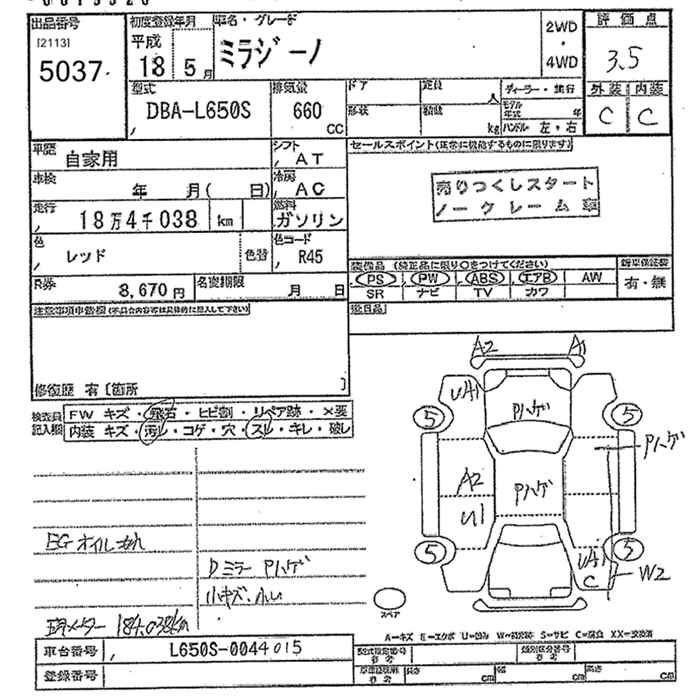 出品番号
[2113]
5037
初度登録年月
平成
18 5月
車名・グレード
ミラジーノ
2WD
・
4WD
評価点
3.5
外装 内装
C C
型式
DBA-L650S
排気量
660
CC
ドア
形状
定員
人
積載
kg
ディーラー・並行
モデル年式 年
ハンドル 左・右
車歴
自家用
シフト
AT
車検
年 月( 日)
冷房
AC
走行
18万4千038 km
燃料
ガソリン
色
レッド
色替
色コード
R45
R券
8,670円
名変期限
月 日
セールスポイント(正常に機能するものに限ります)
売りつくしスタート
ノークレーム車
装備品 (純正品に限り○をつけてください)
新車保証書
PS PW ABS エアB AW
有・無
SR ナビ TV カワ
後日品
注意事項申告欄(不具合内容等は具体的に記入して下さい)
修復歴 有[箇所 ]
検査員
記入欄
FW キズ・飛石・ヒビ割・リペア跡・×要
内装 キズ・汚レ・コゲ・穴・スレ・キレ・破レ
EGオイルもれ
Dミラー Pハゲ
小キズ・小凹
現メーター 184,038km
A2 A1
UA1
Pハゲ
5 5
Pハゲ
A2
Pハゲ
U1
5 5
UA1
C
W2
スペア
A=キズ E=エクボ U=凹み W=補修跡 S=サビ C=腐食 XX=交換済
車台番号
L650S-0044015
登録番号
型式指定番号
類別区分番号
長さ cm
幅 cm
高さ cm